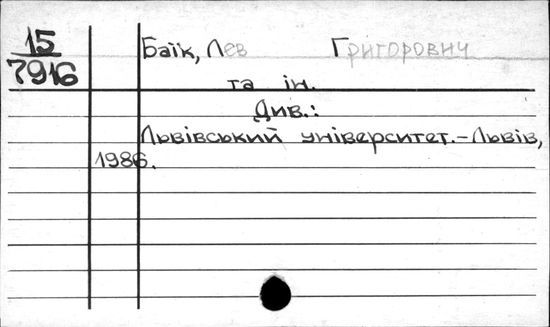 15
7916
Баїк, Лев Григорович
та ін.
Див.:
Львівський університет.-Львів,
1986.